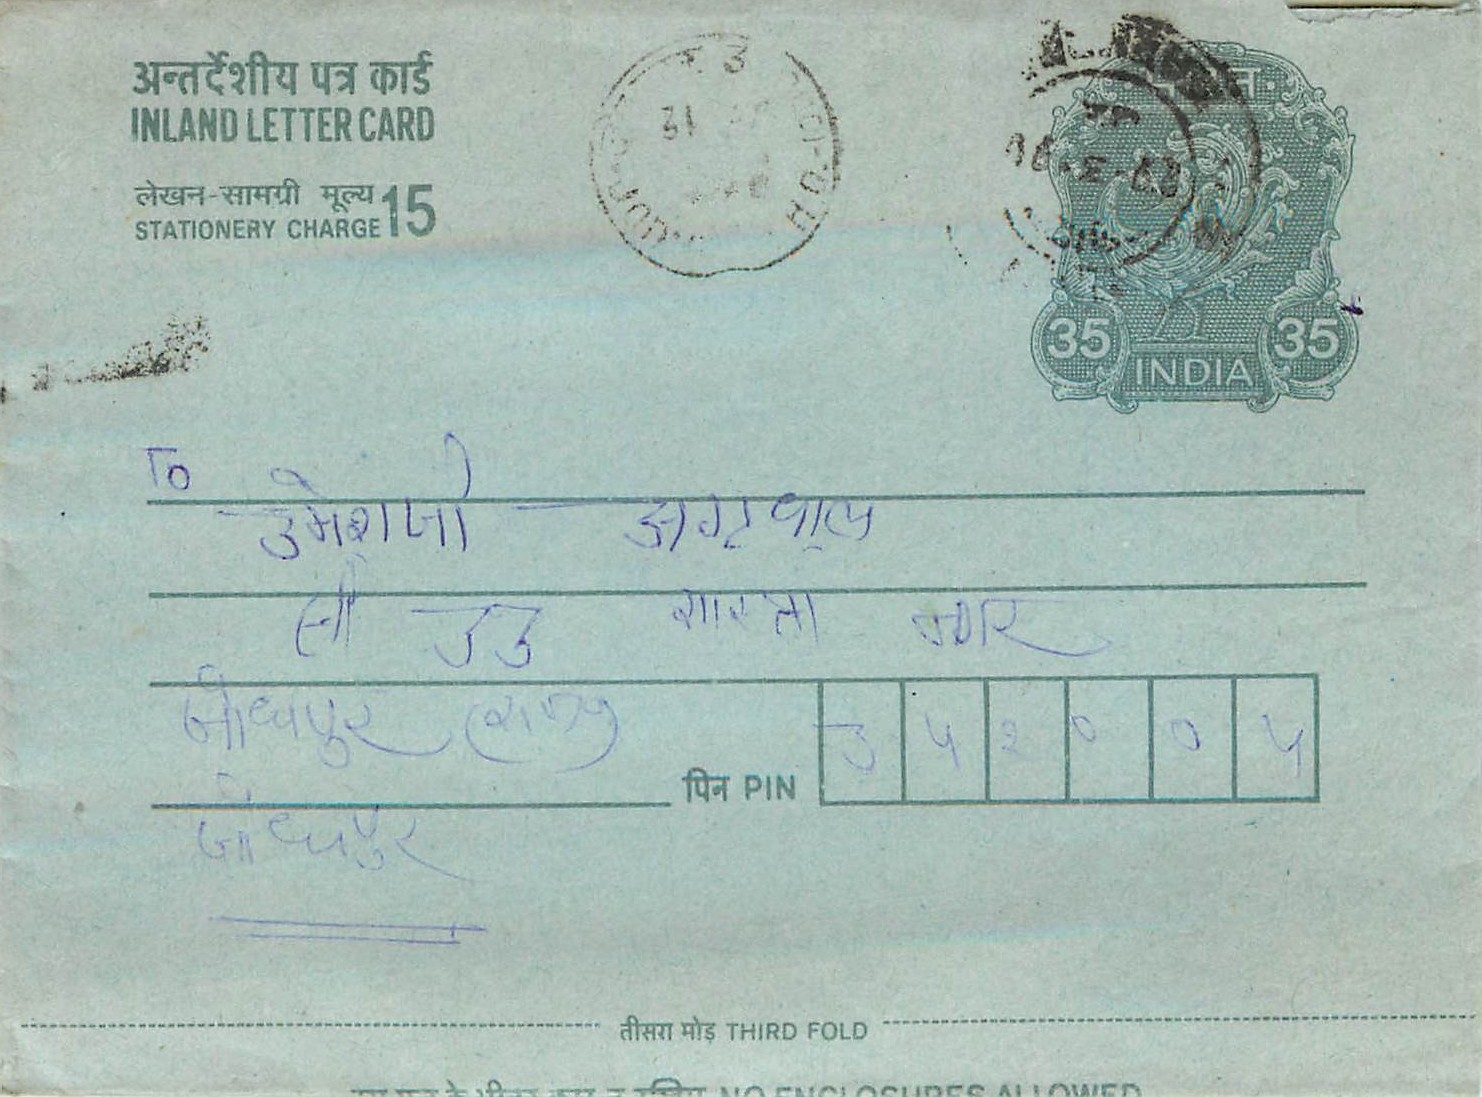 अन्तर्देशीय पत्र कार्ड
INLAND LETTER CARD
लेखन-सामग्री मूल्य 15
STATIONERY CHARGE
3
31
H.O.
35 35
INDIA
To
उमेशजी अग्रवाल
सी 33 शास्त्री नगर
जोधपुर (राज)
पिन PIN 3 4 2 0 0 4
जोधपुर
तीसरा मोड़ THIRD FOLD
NO ENCLOSURES ALLOWED